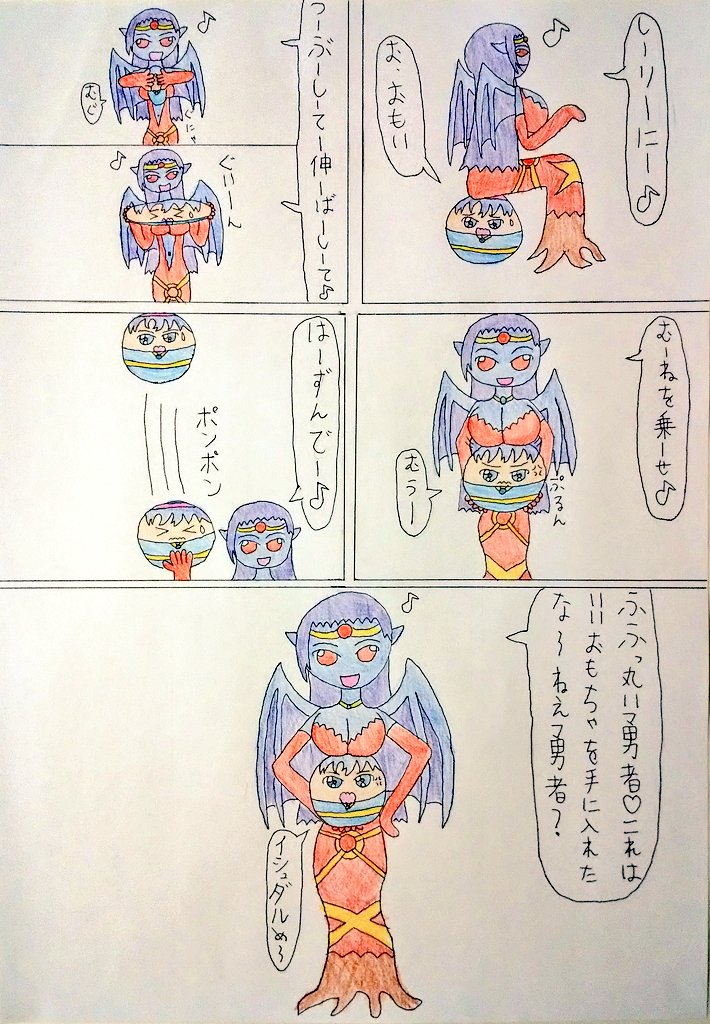 しーりーにー♪
お、おもい
つーぶーしーてー伸ーばーしーて♪
むぐ
ぐにゃ
ぐいーーん
むーねを乗ーせ♪
むぅー
ぷるん
はーずんでー♪
ポンポン
ふふっ丸い勇者♡これは
いいおもちゃを手に入れた
な〜ねえ勇者？
イシュダルめ〜